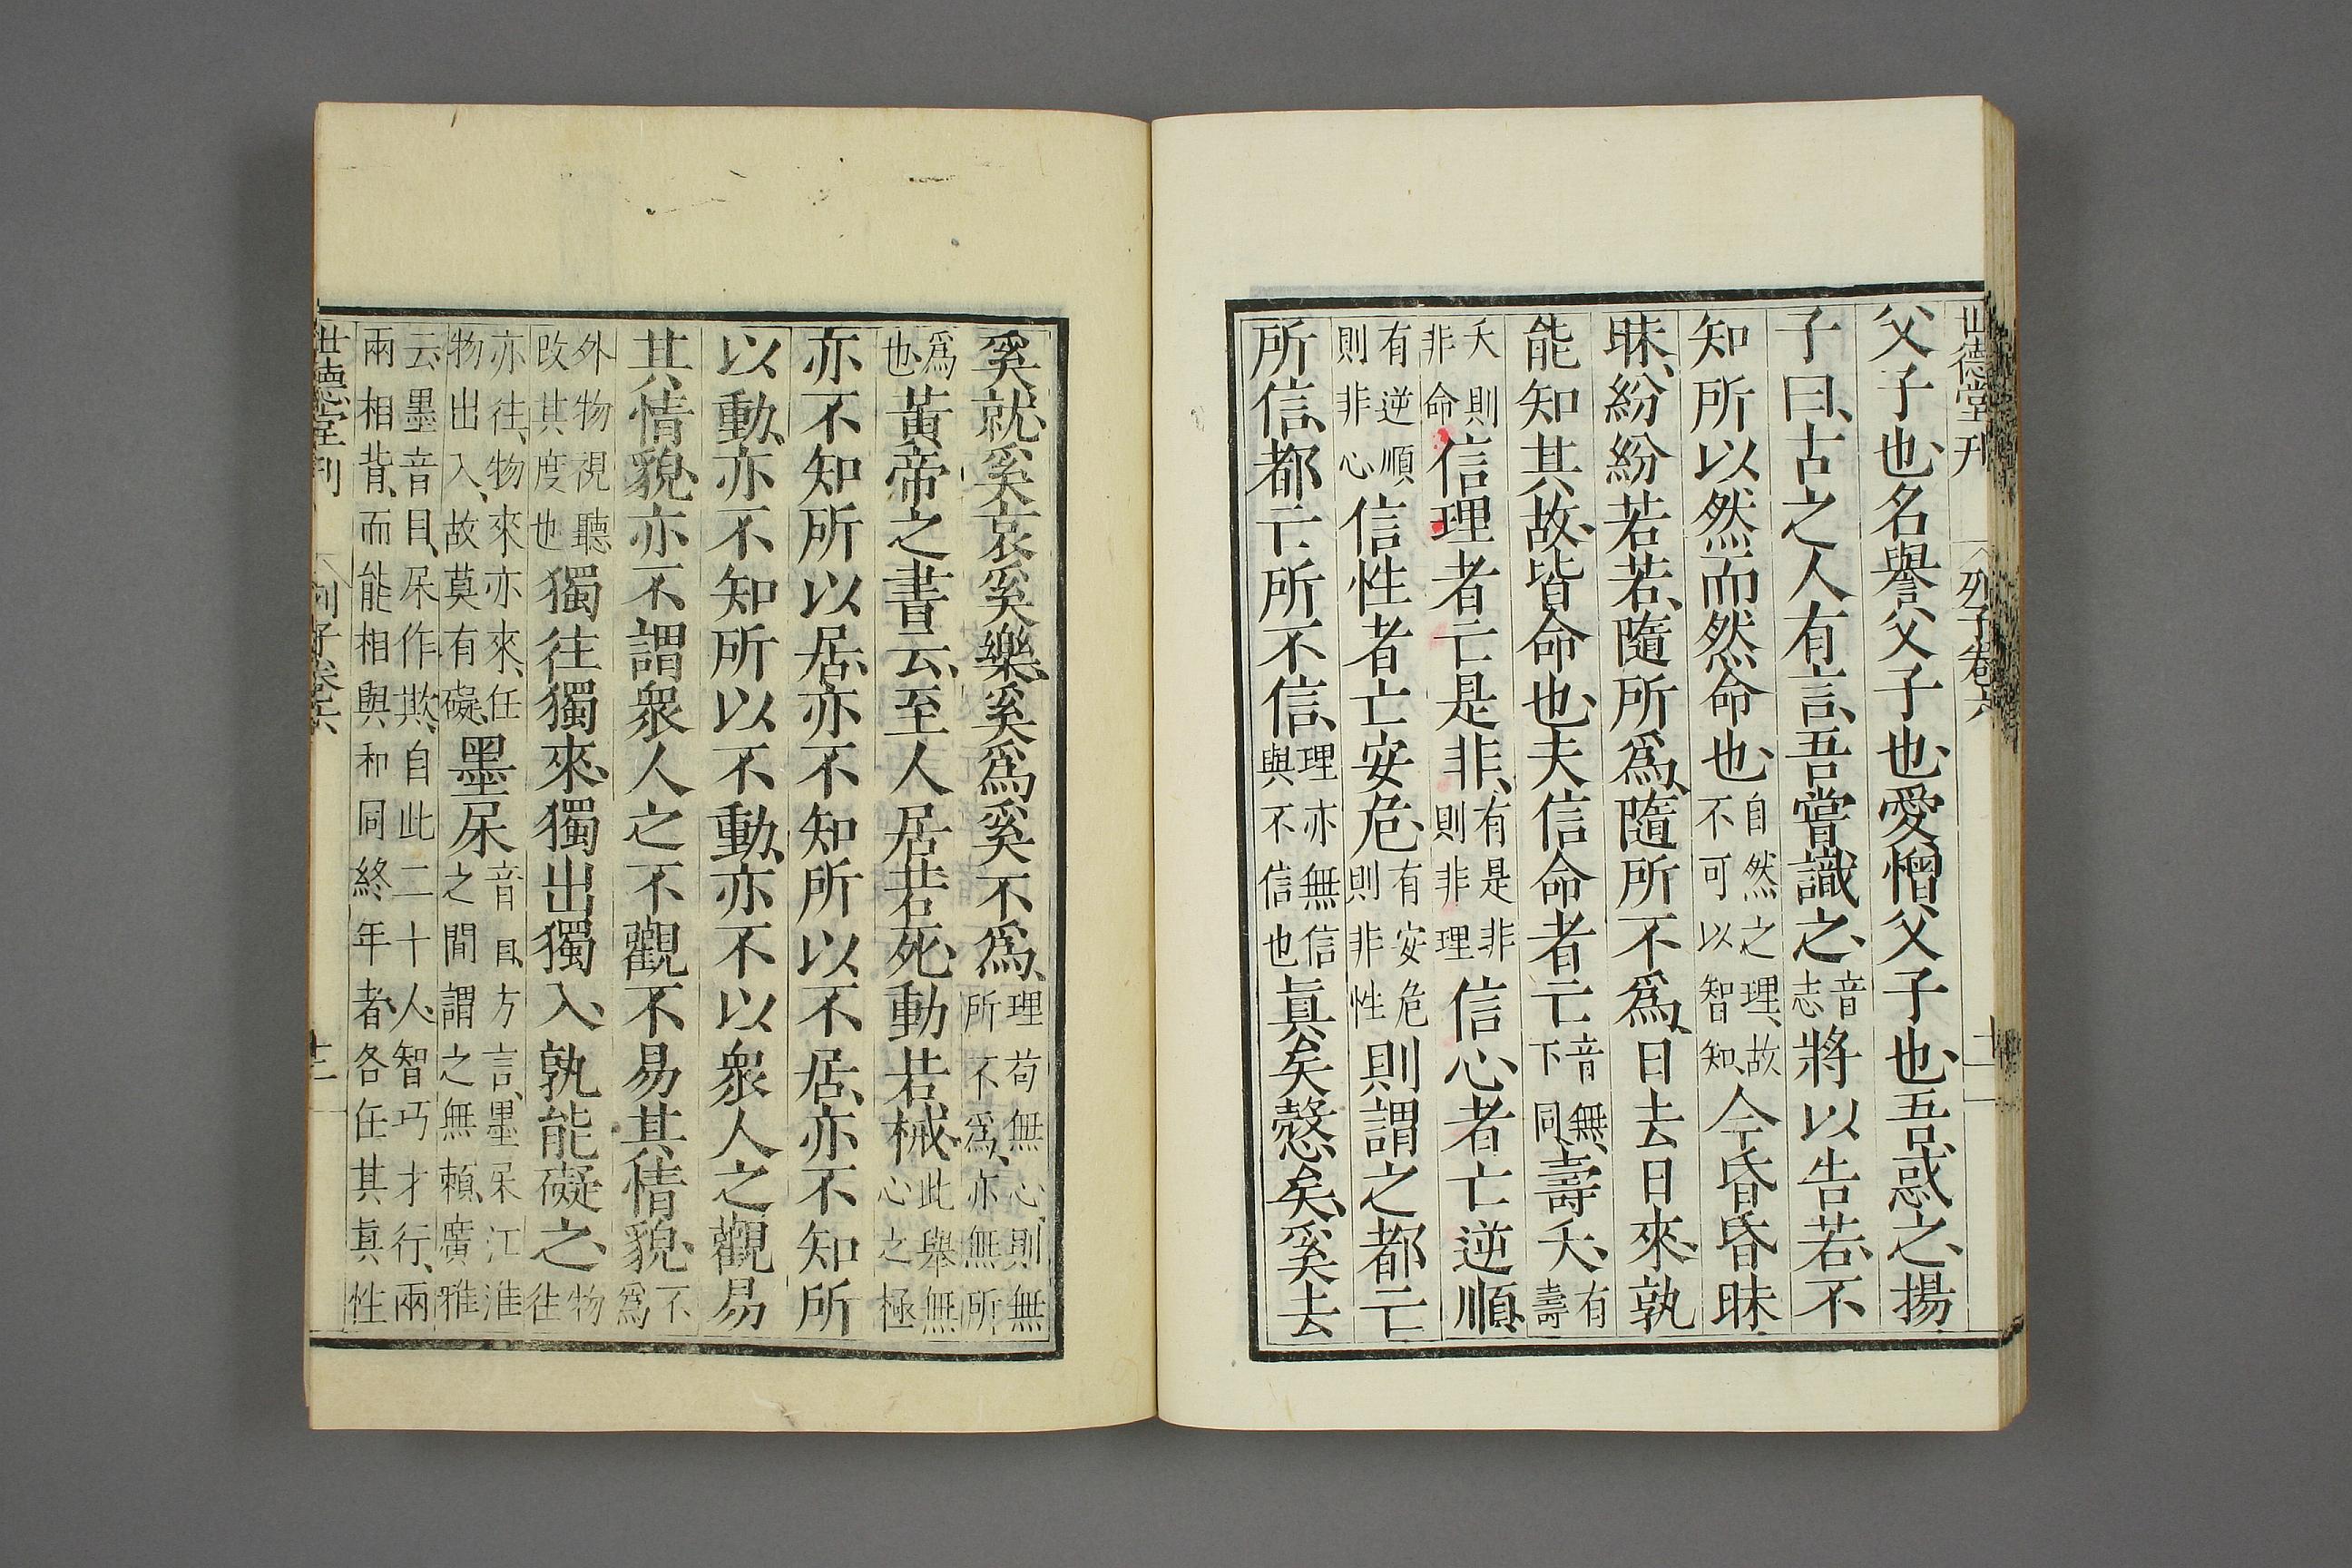 世德堂刊 列子卷六
父子也、名譽父子也、愛憎父子也、吾惑之、揚
子曰、古之人有言、吾嘗識之、音志將以告若、不
知所以然而然命也、自然之理、故不可以智知、今昏昏昧
昧、紛紛若若、隨所爲、隨所不爲、日去日來、孰
能知其故、皆命也、夫信命者亡音無、下同、壽夭、有壽
夭則非命信理者亡是非、有是非則非理信心者亡逆順、
有逆順則非心信性者亡安危、有安危則非性則謂之都亡
所信、都亡所不信、理亦無信與不信也眞矣慤矣、奚去
奚就、奚哀奚樂、奚爲奚不爲、理苟無心、則無所不爲、亦無所
爲也黃帝之書云、至人居若死、動若械、此舉無心之極
亦不知所以居、亦不知所以不居、亦不知所
以動、亦不知所以不動、亦不以衆人之觀易
其情貌、亦不謂衆人之不觀不易其情貌、不爲
外物視聽改其度也獨往獨來、獨出獨入、孰能礙之、物往
亦往、物來亦來、任物出入、故莫有礙、墨杘音目、方言、墨杘江淮之間謂之無賴、廣雅
云、墨音目、杘作欺、自此二十人、智巧才行、兩兩相背、而能相與和同終年者、各任其眞性
世德堂刊 列子卷六 十二